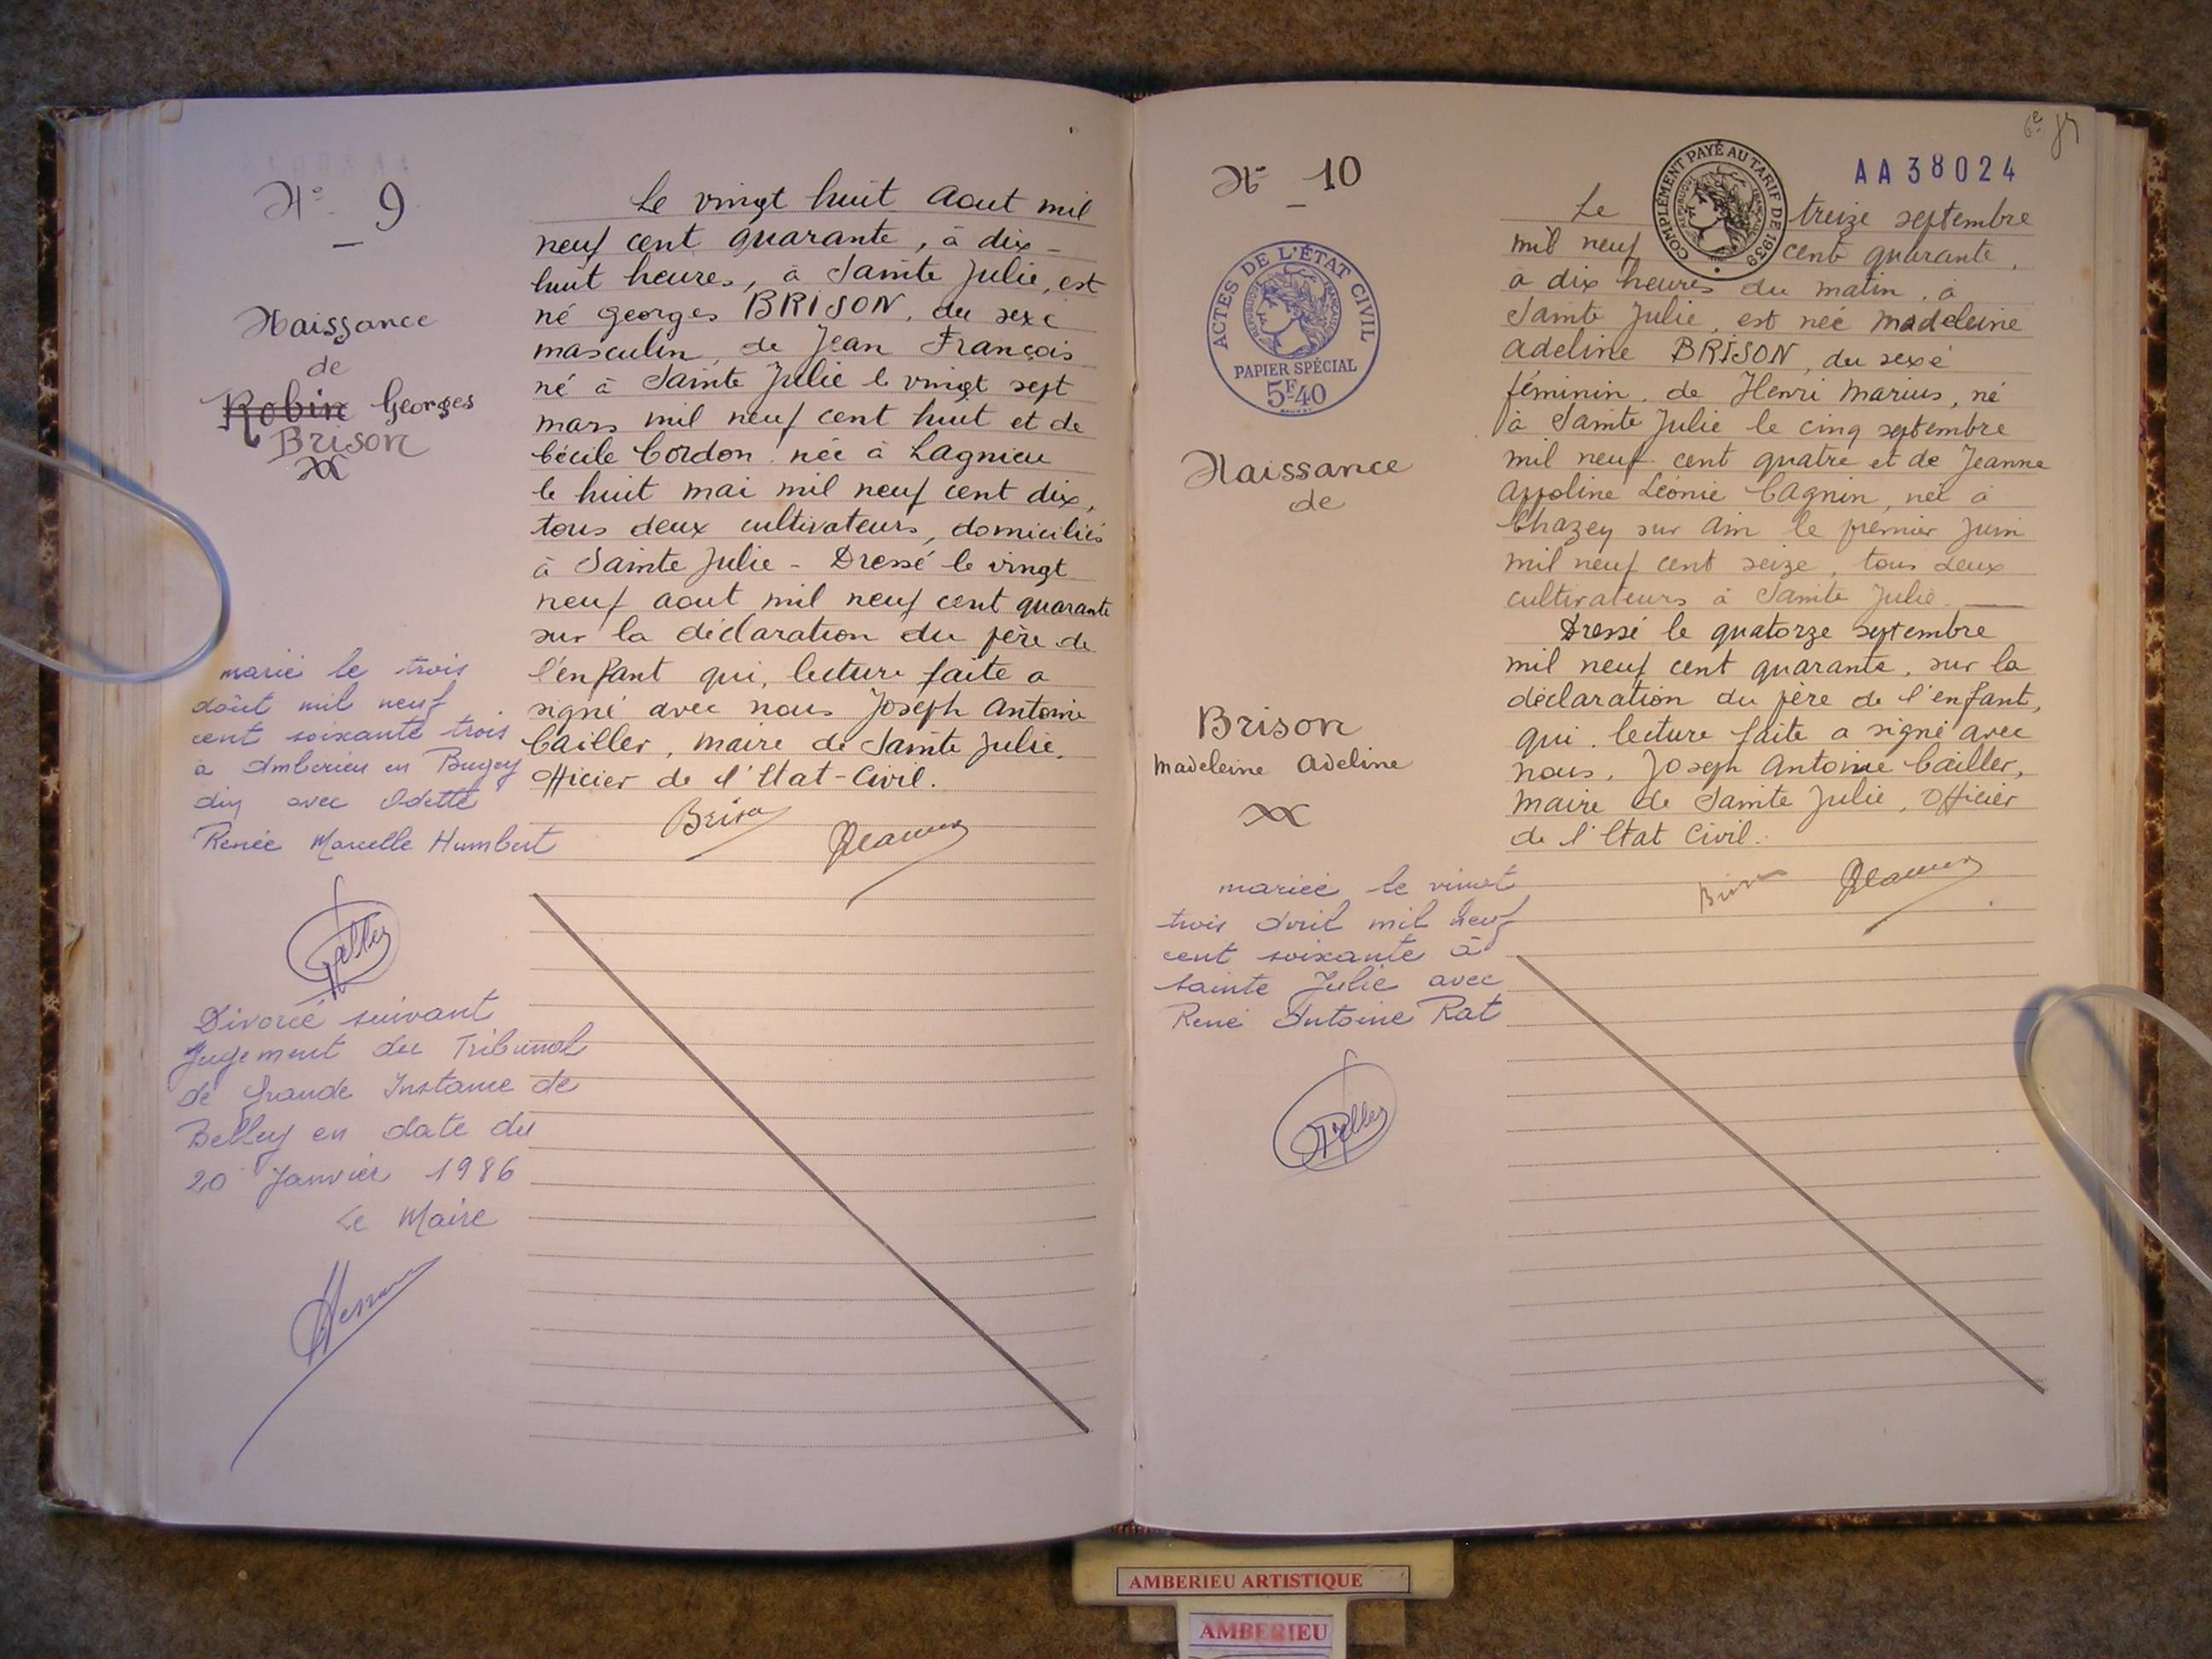 N° 9
Naissance
de
Robin Georges
Brison
Le vingt huit Aout mil
neuf cent quarante, à dix-
huit heures, à Sainte Julie, est
né Georges BRISON, du sexe
masculin, de Jean François
né à Sainte Julie le vingt sept
mars mil neuf cent huit et de
Cécile Cordon née à Lagnieu
le huit mai mil neuf cent dix,
tous deux cultivateurs, domiciliés
à Sainte Julie - Dressé le vingt
neuf aout mil neuf cent quarante
sur la déclaration du père de
l'enfant qui, lecture faite a
signé avec nous Joseph Antoine
Cailler, maire de Sainte Julie,
Officier de l'Etat-Civil.
Brison
marié le trois
août mil neuf
cent soixante trois
à Ambérieu en Bugey
Ain avec Odette
Renée Marcelle Humbert
Divorcé suivant
Jugement du Tribunal
de Grande Instance de
Belley en date du
20 Janvier 1986
Le Maire
6e
AA38024
N° 10
ACTES DE L'ÉTAT CIVIL
RÉPUBLIQUE FRANÇAISE
PAPIER SPÉCIAL
5F40
COMPLÉMENT PAYÉ AU TARIF DE 1939
RÉPUBLIQUE FRANÇAISE
Naissance
de
Brison
Madeleine Adeline
Le treize septembre
mil neuf cent quarante,
a dix heures du matin, à
Sainte Julie, est née Madeleine
Adeline BRISON, du sexe
féminin, de Henri Marius, né
à Sainte Julie le cinq septembre
mil neuf cent quatre et de Jeanne
Appoline Léonie Cagnin, née à
Chazey sur Ain le premier Juin
mil neuf cent seize, tous deux
cultivateurs à Sainte Julie.
Dressé le quatorze septembre
mil neuf cent quarante, sur la
déclaration du père de l'enfant,
qui, lecture faite a signé avec
nous, Joseph Antoine Cailler,
maire de Sainte Julie, Officier
de l'Etat Civil.
Brison
mariée le vingt
trois Avril mil neuf
cent soixante à
Sainte Julie avec
René Antoine Rat
AMBERIEU ARTISTIQUE
AMBERIEU